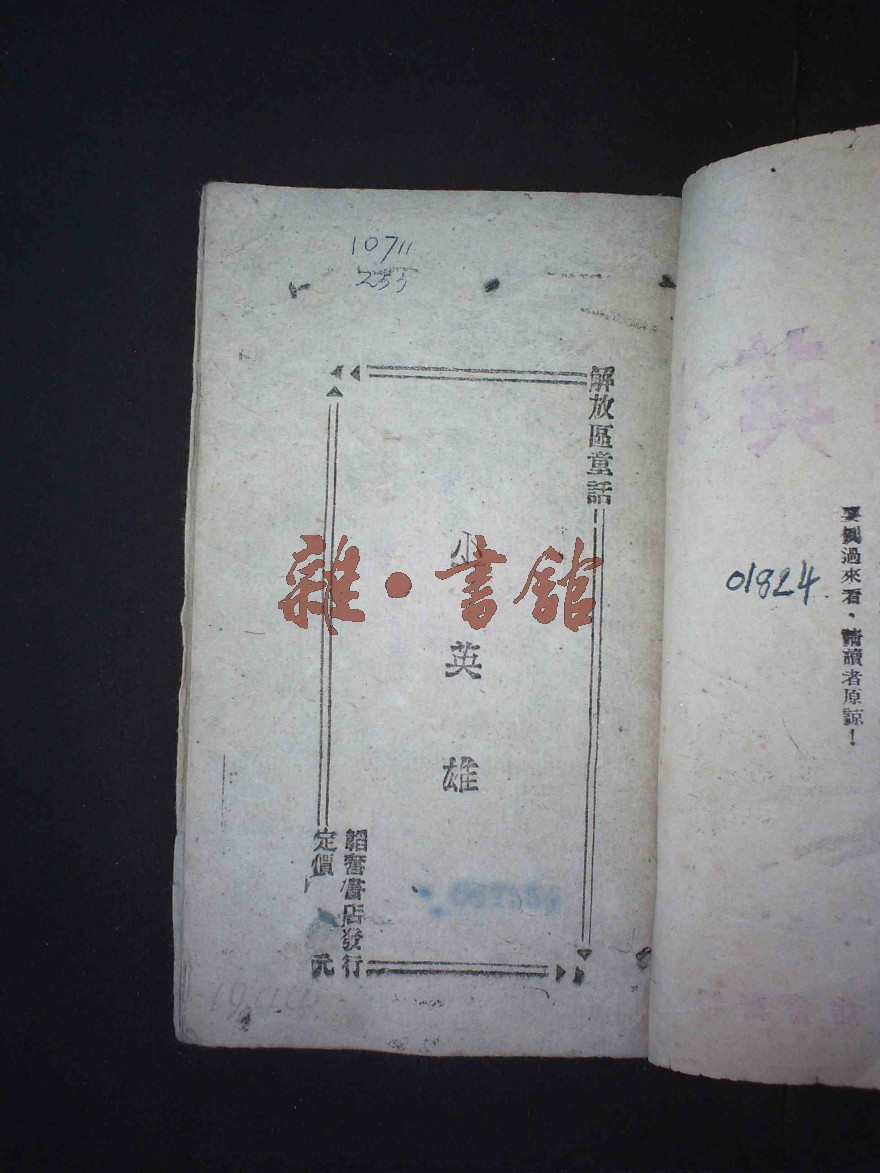 10711
255
解放區童話
小英雄
韜奮書店發行
定價 元
雜·書館
01824
要倒過來看,請讀者原諒!
英